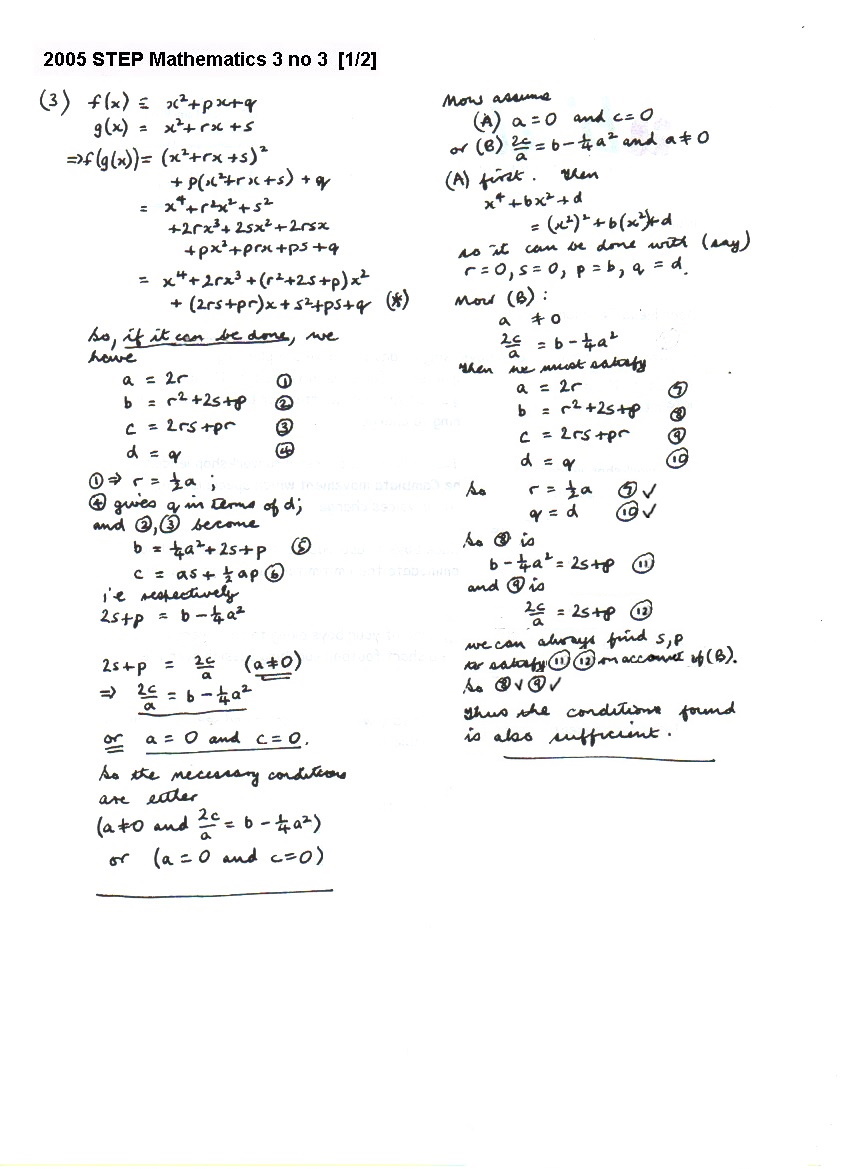 2005 STEP Mathematics 3 no 3 [1/2]
(3) f(x) ≡ x²+px+q
g(x) = x²+rx+s
⇒f(g(x)) = (x²+rx+s)²
+p(x²+rx+s)+q
= x⁴+r²x²+s²
+2rx³+2sx²+2rsx
+px²+prx+ps+q
= x⁴+2rx³+(r²+2s+p)x²
+(2rs+pr)x+s²+ps+q (*)
So, if it can be done, we
have
a = 2r ①
b = r²+2s+p ②
c = 2rs+pr ③
d = q ④
①⇒ r = ½a ;
④ gives q in terms of d;
and ②,③ become
b = ¼a²+2s+p ⑤
c = as+½ap ⑥
i.e respectively
2s+p = b-¼a²
2s+p = 2c/a (a≠0)
⇒ 2c/a = b-¼a²
or a = 0 and c=0.
So the necessary conditions
are either
(a≠0 and 2c/a = b-¼a²)
or (a=0 and c=0)
Now assume
(A) a=0 and c=0
or (B) 2c/a = b-¼a² and a≠0
(A) first. Then
x⁴+bx²+d
=(x²)²+b(x²)+d
so it can be done with (say)
r=0, s=0, p=b, q=d.
Now (B) :
a ≠0
2c/a = b-¼a²
then we must satisfy
a = 2r ⑦
b = r²+2s+p ⑧
c = 2rs+pr ⑨
d = q ⑩
So r = ½a ⑦✓
q = d ⑩✓
So ⑧ is
b-¼a² = 2s+p ⑪
and ⑨ is
2c/a = 2s+p ⑫
we can always find s,p
to satisfy ⑪ ⑫ on account of (B).
So ⑧✓ ⑨✓
Thus the conditions found
is also sufficient.